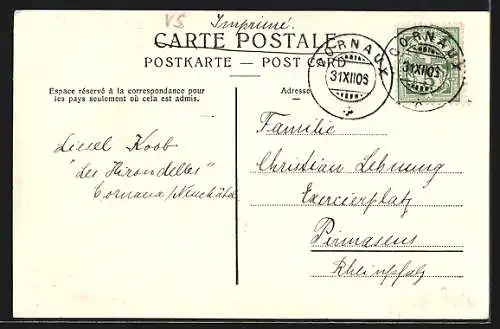 VS
Imprimé.
CARTE POSTALE
POSTKARTE — POST CARD
CORNAUX
31 XII 05
CORNAUX
31 XII 05
Espace réservé à la correspondance pour
les pays seulement où cela est admis.
Adresse
Familie
Liesel Koob
Christian Lehnung
"Les Hirondelles"
Exercierplatz
Cornaux/Neuchâtel
Pirmasens
Rheinpfalz